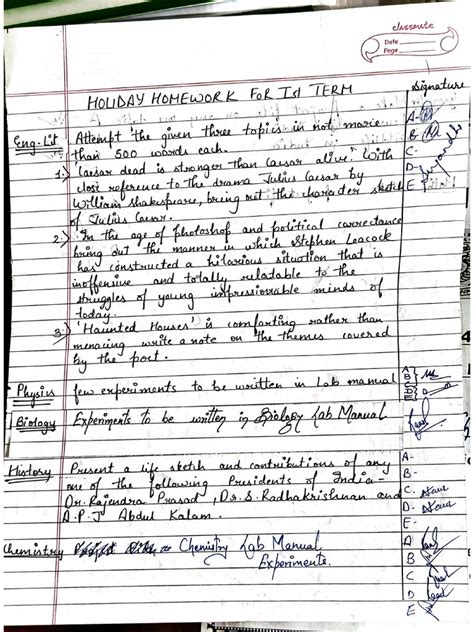 classmate
Date
Page
HOLIDAY HOMEWORK FOR Ist TERM
Signature
Eng. Lit
Attempt the given three topics in not more
than 500 words each.
1.) 'Caesar dead is stronger than Caesar alive.' With
close reference to the drama Julius Caesar by
William Shakespeare, bring out the character sketch
of Julius Caesar.
2.) In the age of photoshop and political correctance
bring out the manner in which Stephen Leacock
has constructed a hilarious situation that is
inoffensive and totally relatable to the
struggles of young impressionable minds of
today.
3.) 'Haunted Houses' is comforting rather than
menacing write a note on the themes covered
by the poet.
A-
B-
C-
D-
E
Physics
few experiments to be written in Lab manual
A
B
C
D
Biology
Experiments to be written in Biology Lab Manual
History
Present a life sketch and contributions of any
one of the following Presidents of India-
Dr. Rajendra Prasad, Dr. S. Radhakrishnan and
A.P.J Abdul Kalam.
A-
B-
C-
D-
E-
Chemistry
Chemistry Lab Manual
Experiments.
A
B
C
D
E